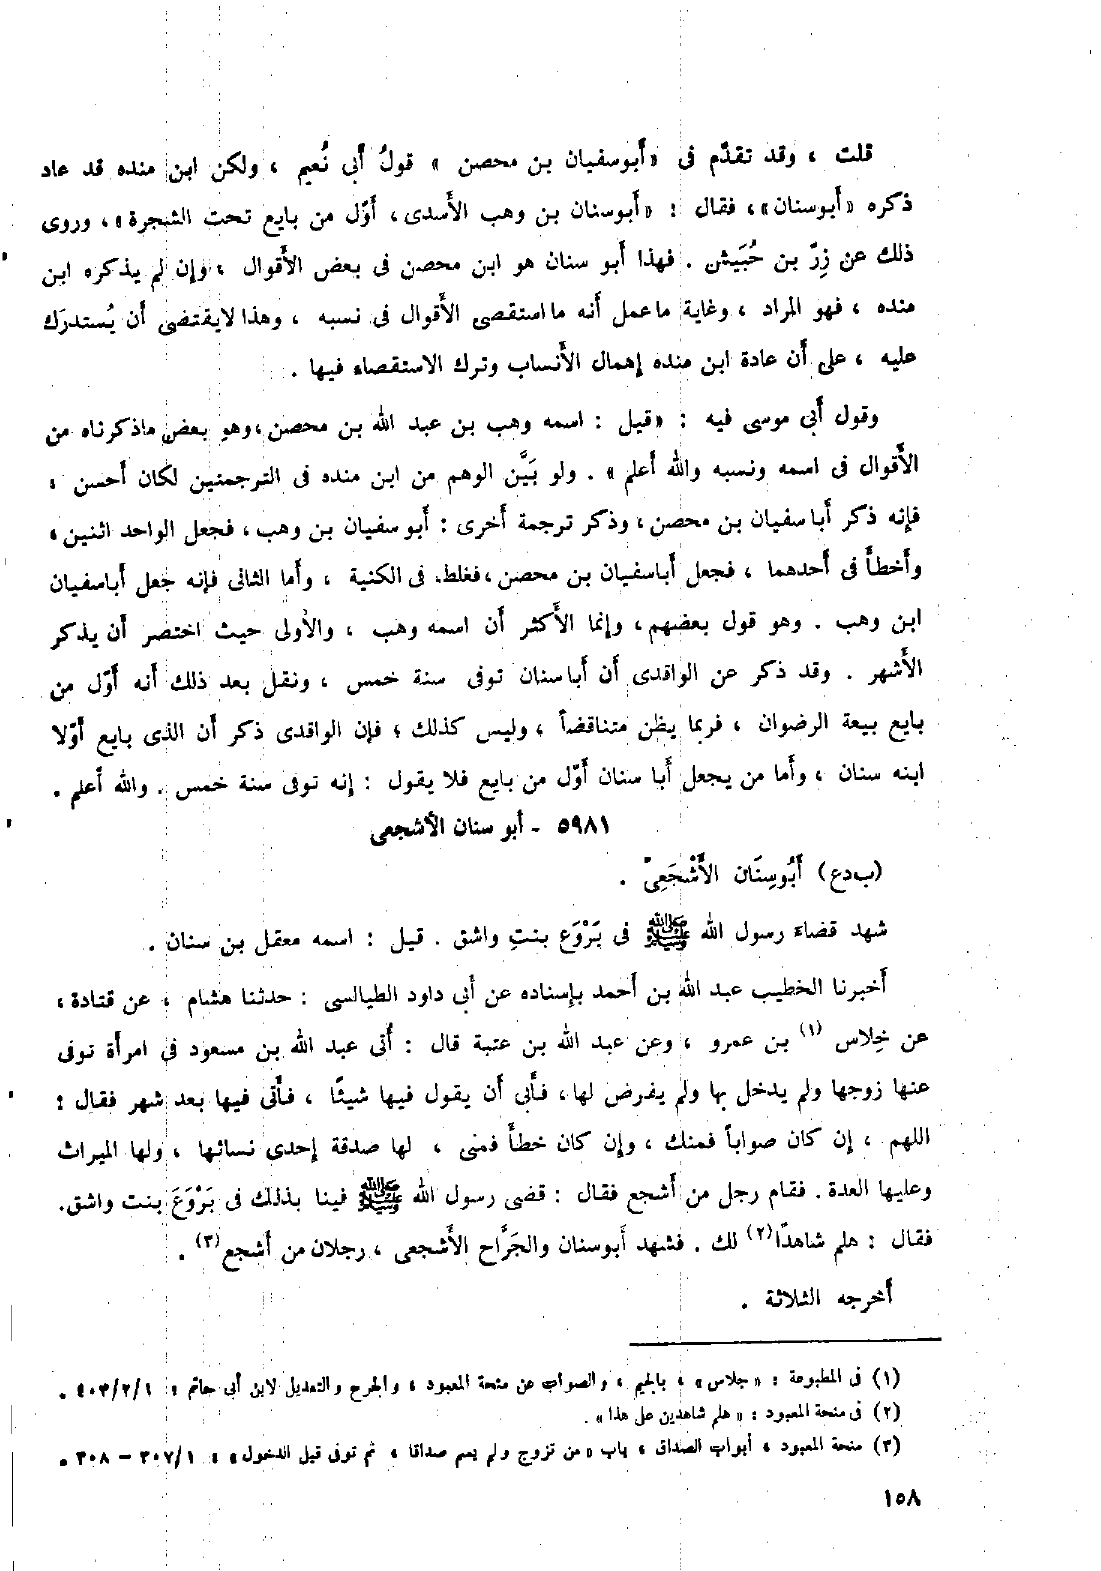 قلت ، وقد تقدّم فى «أبوسفيان بن محصن » قولُ أبى نُعيم ، ولكن ابن منده قد عاد
ذكره «أبوسنان»، فقال : «أبوسنان بن وهب الأسدى، أوّل من بايع تحت الشجرة»، وروى
ذلك عن زِرّ بن حُبَيش . فهذا أبو سنان هو ابن محصن فى بعض الأقوال ، وإن لم يذكره ابن
منده ، فهو المراد ، وغاية ماعمل أنه ما استقصى الأقوال فى نسبه ، وهذا لايقتضى أن يُستدرَك
عليه ، على أن عادة ابن منده إهمال الأنساب وترك الاستقصاء فيها .
وقول أبى موسى فيه : «قيل : اسمه وهب بن عبد الله بن محصن ،وهو بعض ماذكرناه من
الأقوال فى اسمه ونسبه والله أعلم » . ولو بَيَّن الوهم من ابن منده فى الترجمتين لكان أحسن ،
فإنه ذكر أبا سفيان بن محصن ، وذكر ترجمة أخرى : أبو سفيان بن وهب ، فجعل الواحد اثنين ،
وأخطأ فى أحدهما ، فجعل أباسفيان بن محصن ،فغلط فى الكنية ، وأما الثانى فإنه جعل أباسفيان
ابن وهب . وهو قول بعضهم ، وإنما الأكثر أن اسمه وهب ، والأولى حيث اختصر أن يذكر
الأشهر . وقد ذكر عن الواقدى أن أبا سنان توفى سنة خمس ، ونقل بعد ذلك أنه أوّل من
بايع بيعة الرضوان ، فربما يظن متناقضاً ، وليس كذلك ؛ فإن الواقدى ذكر أن الذى بايع أوّلا
ابنه سنان ، وأما من يجعل أبا سنان أوّل من بايع فلا يقول : إنه توفى سنة خمس . والله أعلم .
٥٩٨١ - أبو سنان الأشجعى
(ب دع) أَبُوسِنَان الأَشْجَعِىّ .
شهد قضاء رسول الله ﷺ فى بَرْوَع بنتِ واشق . قيل : اسمه معقل بن سنان .
أخبرنا الخطيب عبد الله بن أحمد بإسناده عن أبى داود الطيالسى : حدثنا هشام ، عن قتادة ،
عن خِلاس (١) بن عمرو ، وعن عبد الله بن عتبة قال : أُتى عبد الله بن مسعود فى امرأة توفى
عنها زوجها ولم يدخل بها ولم يفرض لها ، فأبى أن يقول فيها شيئًا ، فأتى فيها بعد شهر فقال :
اللهم ، إن كان صواباً فمنك ، وإن كان خطأً فمنى ، لها صدقة إحدى نسائها ، ولها الميراث
وعليها العدة . فقام رجل من أشجع فقال : قضى رسول الله ﷺ فينا بذلك فى بَرْوَعَ بنت واشق.
فقال : هلم شاهدًا(٢) لك . فشهد أبوسنان والجَرَّاح الأشجعى ، رجلان من أشجع (٣) .
أخرجه الثلاثة .
(١) فى المطبوعة : «جلاس» ، بالجيم ، والصواب عن منحة المعبود ، والجرح والتعديل لابن أبى حاتم : ٤٠٣/٢/١ .
(٢) فى منحة المعبود : «هلم شاهدين على هذا» .
(٣) منحة المعبود ، أبواب الصداق ، باب «من تزوج ولم يسم صداقا ، ثم توفى قبل الدخول» : ٣٠٧/١ – ٣٠٨ .
١٥٨